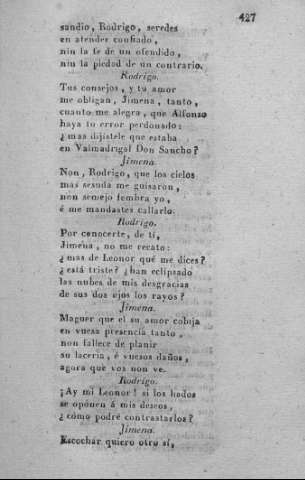 427
sandio, Rodrigo, seredes
en atender confiado,
nin la fe de un ofendido,
nin la piedad de un contrario.
Rodrigo.
Tus consejos, y tu amor
me obligan, Jimena, tanto,
cuanto me alegra, que Alfonso
haya tu error perdonado:
¿mas dijístele que estaba
en Valmadrigal Don Sancho?
Jimena.
Non, Rodrigo, que los cielos
mas sesuda me guisaron,
nen semejo fembra yo,
é me mandastes callarlo.
Rodrigo.
Por conocerte, de tí,
Jimena, no me recato:
¿mas de Leonor qué me dices?
¿está triste? ¿han eclipsado
las nubes de mis desgracias
de sus dos ojos los rayos?
Jimena.
Maguer que el su amor cobija
en vuesa presencia tanto,
non fallece de planir
su laceria, é vuesos daños,
agora que vos non ve.
Rodrigo.
¡Ay mi Leonor! si los hados
se opónen á mis deseos,
¿cómo podré contrastarlos?
Jimena.
Escochar quiero otro sí,